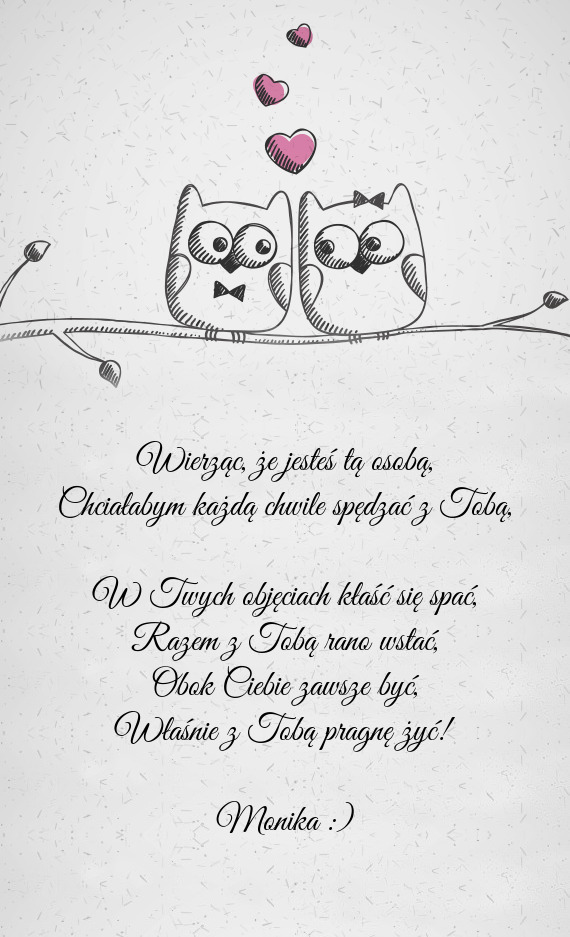 Wierząc, że jesteś tą osobą,
Chciałabym każdą chwile spędzać z Tobą,
W Twych objęciach kłaść się spać,
Razem z Tobą rano wstać,
Obok Ciebie zawsze być,
Właśnie z Tobą pragnę żyć!
Monika :)